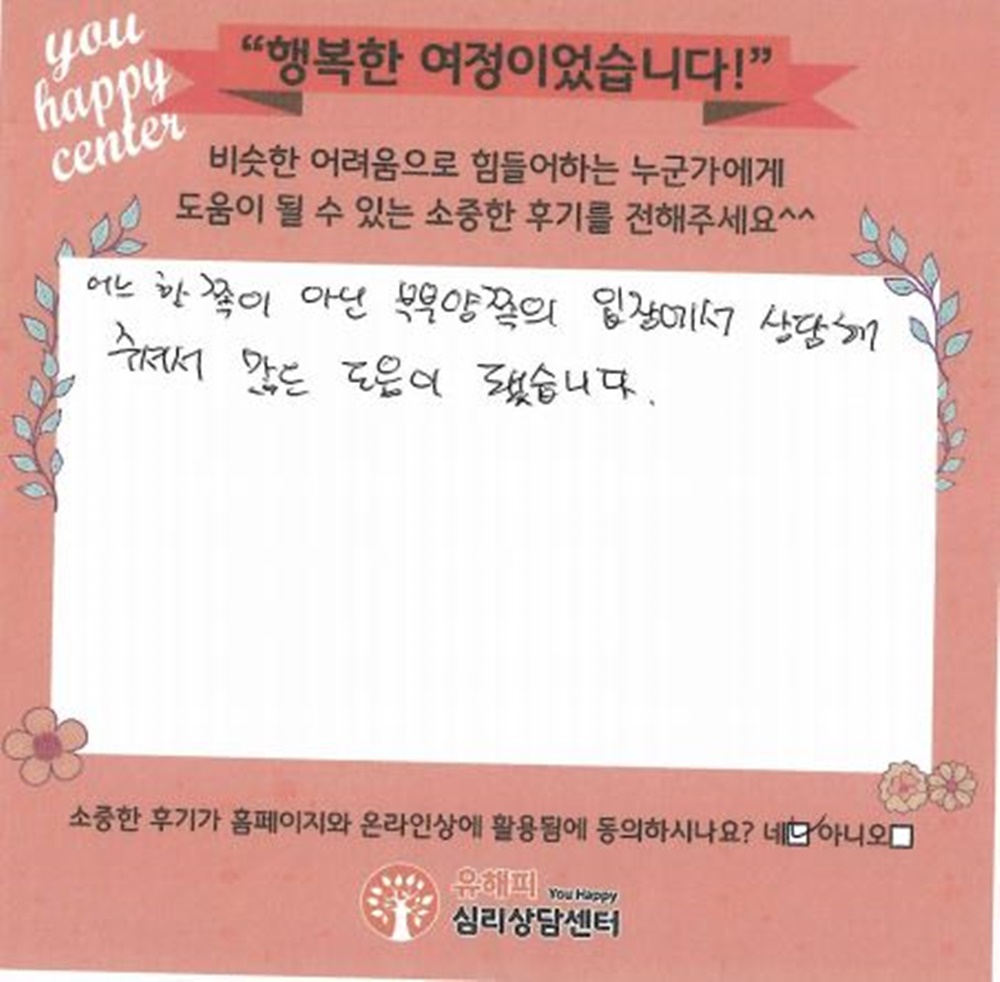 you
happy
center
“행복한 여정이었습니다!”
비슷한 어려움으로 힘들어하는 누군가에게
도움이 될 수 있는 소중한 후기를 전해주세요^^
어느 한쪽이 아닌 부부양쪽의 입장에서 상담해
주셔서 많은 도움이 됐습니다.
소중한 후기가 홈페이지와 온라인상에 활용됨에 동의하시나요? 네☑ 아니오☐
유해피 You Happy
심리상담센터